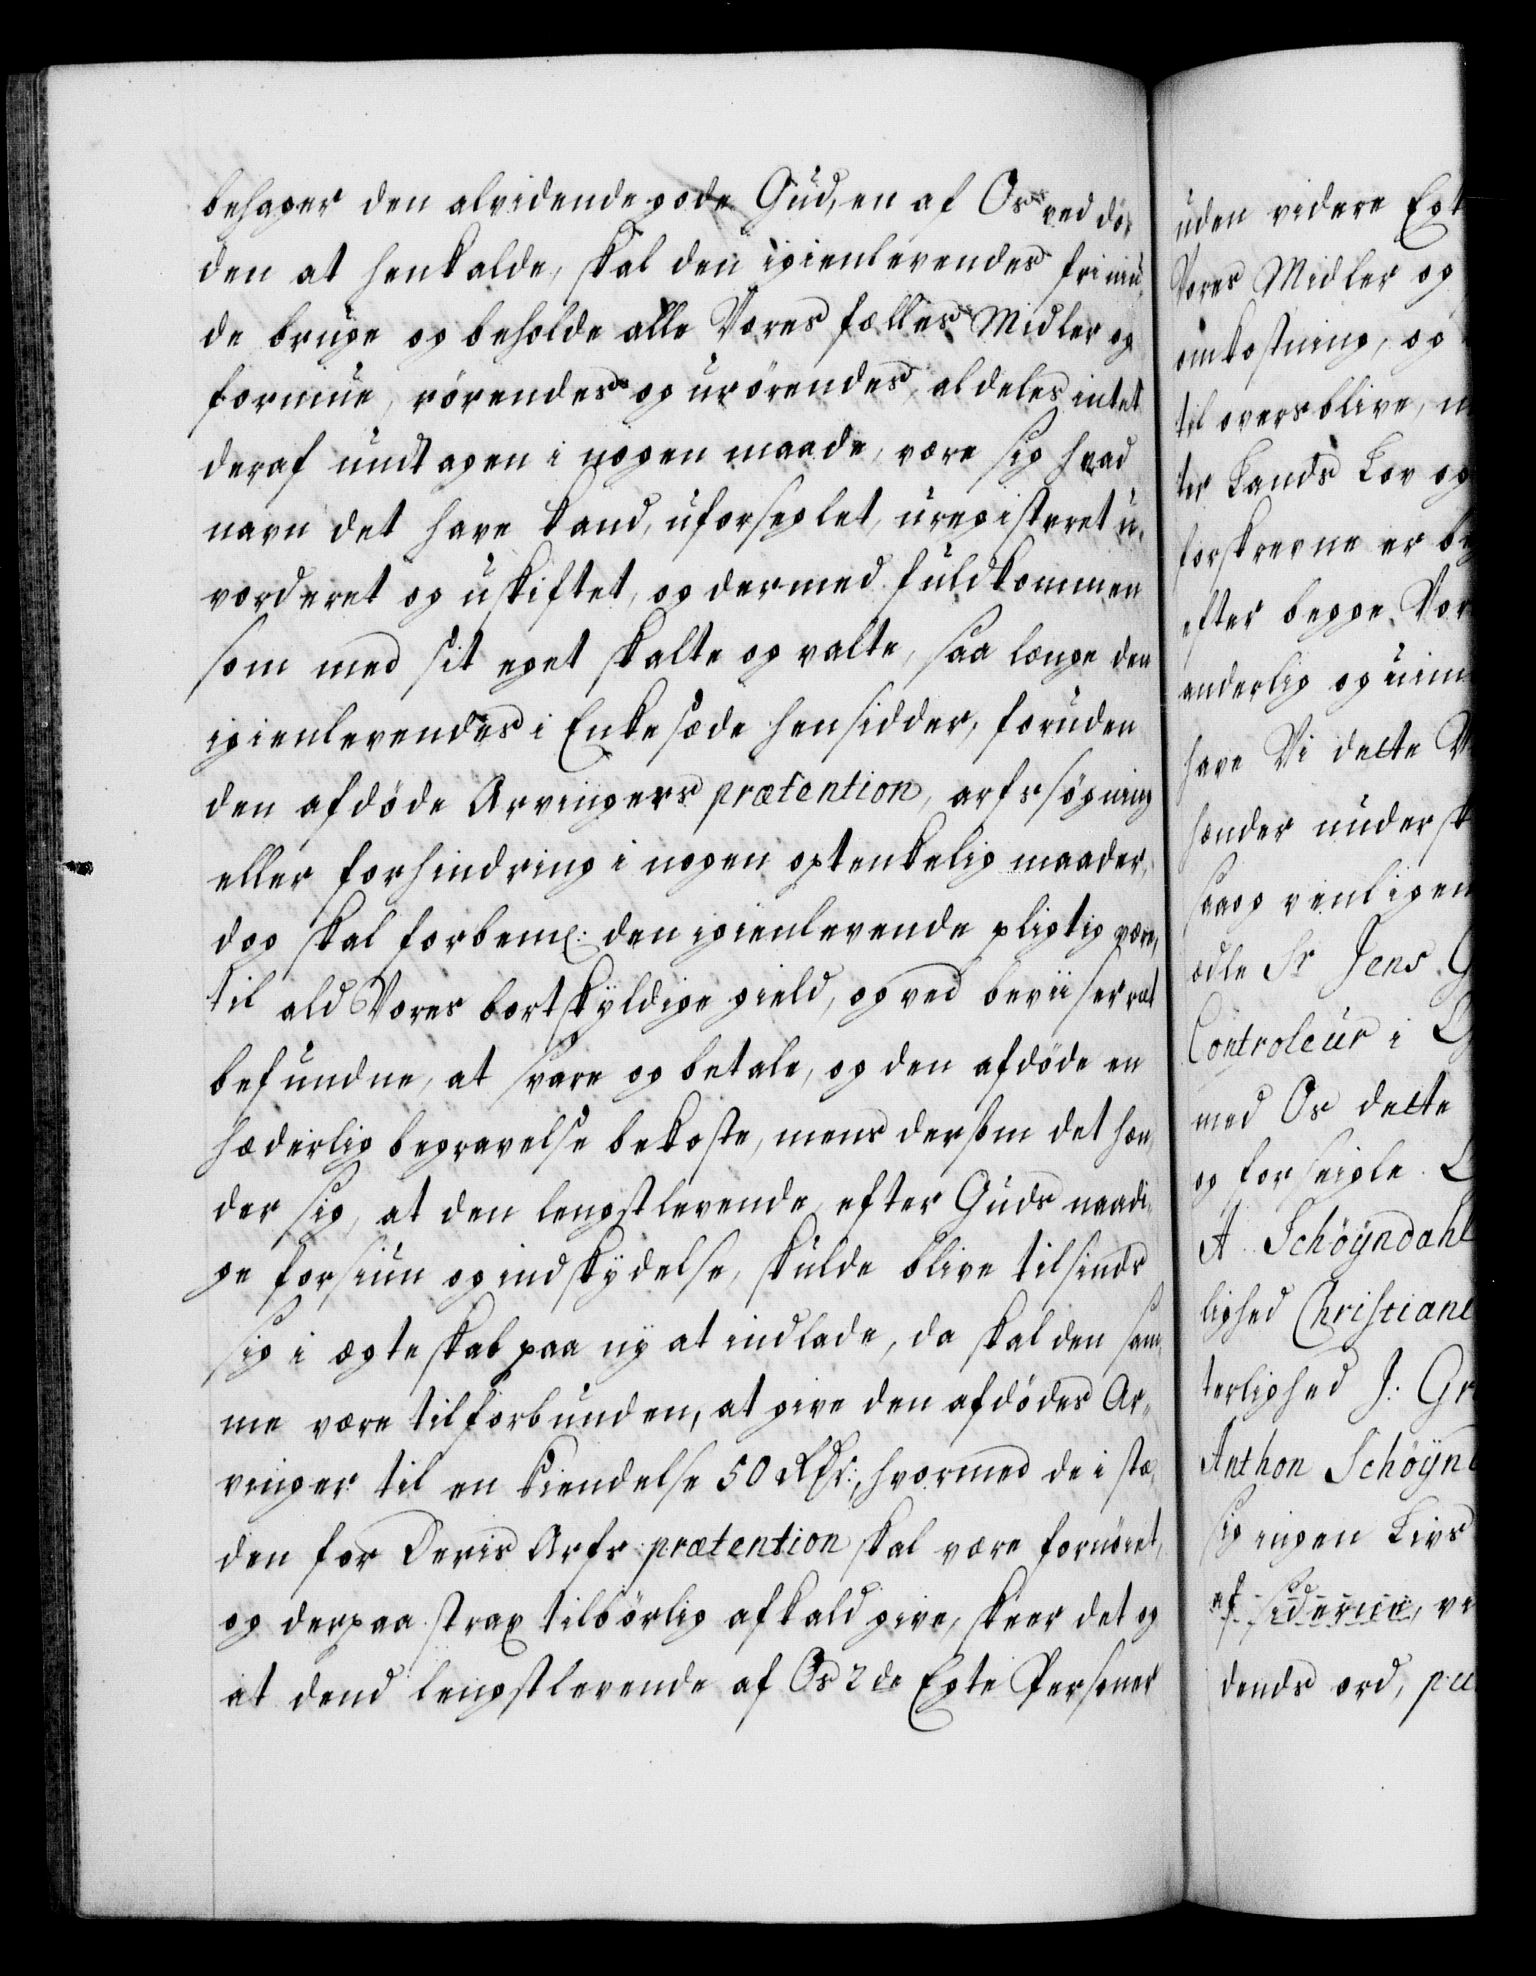 behager den alvidende gode Gud, en af Os ved dö-
den at henkalde, skal den igienlevendes frimü-
de brüge og beholde alle Vores fælles Midler og
formüe, rörendes og urörendes, aldeles intet
deraf undtagen i nogen maade, være sig hvad
navn det have kand, uforseglet, uregisteret u-
vorderet og uskiftet, og dermed fuldkommen
som med sit eget skalte og valte, saa længe den
igienlevendes i Enkesæde hensidder, foruden
den afdøde Arvingers prætention, arfs søgning
eller forhindring i nogen optenkelig maader,
dog skal forbem: den igienlevende pligtig være,
til ald Vores bortskÿldige gield, og ved beviiser ret
befundne, at svare og betale, og den afdöde en
hæderlig begravelse bekoste, mens dersom det hæn-
der sig, at den lengstlevende efter Guds naadi-
ge forsiun og indskÿdelse, skulde blive tilsinds
sig i ægteskab paa nÿ at indlade, da skal den sam-
me være tilforbunden, at give den afdödes Ar-
vinger til en kiendelse 50 Rdr:, hvormed de i stæ-
den for Deris Arfs prætention skal være fornöiet,
og derpaa strax tilbörlig afkald give, skeer det og
at dend lengstlevende af Os 2de Egte Personer
uden videre Egt
Vores Midler og
omkostning, og
til overs blive,
ter Lands Lov og
forskrevne er be
efter begge Vor
anderlig og uim
have Vi dette
hænder undersk
saaog venligen
ædle Sr Jens G
Controleur i
med Os dette
og forseigle.
A Schöÿndahl
lighed Christiane
terlighed J: Gr
Anthon Schöÿn
sig ingen Livs
af siderne, ve
dends ord,